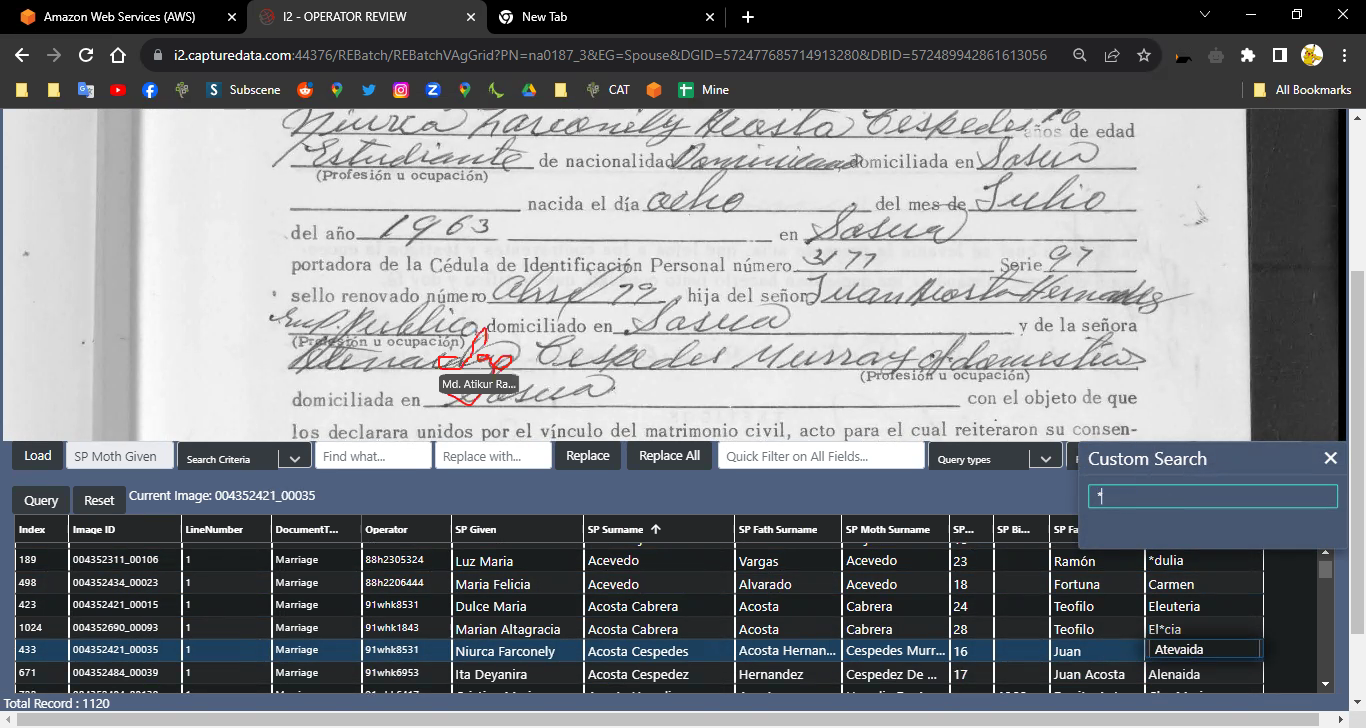 Amazon Web Services (AWS)
I2 - OPERATOR REVIEW
New Tab
i2.capturedata.com:44376/REBatch/REBatchVAgGrid?PN=na0187_3&EG=Spouse&DGID=5724776857149132800&DBID=572489942861613056
Subscene
CAT
Mine
All Bookmarks
Niurca Farconely Acosta Cespedes 16 años de edad
Estudiante de nacionalidad Dominicana domiciliada en Sosua
(Profesión u ocupación)
nacida el día ocho del mes de Julio
del año 1963 en Sosua
portadora de la Cédula de Identificación Personal número 3177 Serie 97
sello renovado número Abril 79, hija del señor Juan Acosta Hernandez
Emp. Publico domiciliado en Sosua y de la señora
(Profesión u ocupación)
Cespedes Murray of. domestico
(Profesión u ocupación)
Md. Atikur Ra...
domiciliada en Sosua con el objeto de que
los declarara unidos por el vínculo del matrimonio civil, acto para el cual reiteraron su consen-
Load SP Moth Given Search Criteria Find what... Replace with... Replace Replace All Quick Filter on All Fields... Query types
Custom Search
*
Query Reset Current Image: 004352421_00035
Index Image ID LineNumber DocumentT... Operator SP Given SP Surname SP Fath Surname SP Moth Surname SP... SP Bi... SP Fa
189 004352311_00106 1 Marriage 88h2305324 Luz Maria Acevedo Vargas Acevedo 23 Ramón *dulia
498 004352434_00023 1 Marriage 88h2206444 Maria Felicia Acevedo Alvarado Acevedo 18 Fortuna Carmen
423 004352421_00015 1 Marriage 91whk8531 Dulce Maria Acosta Cabrera Acosta Cabrera 24 Teofilo Eleuteria
1024 004352690_00093 1 Marriage 91whk1843 Marian Altagracia Acosta Cabrera Acosta Cabrera 28 Teofilo El*cia
433 004352421_00035 1 Marriage 91whk8531 Niurca Farconely Acosta Cespedes Acosta Hernan... Cespedes Murr... 16 Juan Atevaida
671 004352484_00039 1 Marriage 91whk6953 Ita Deyanira Acosta Cespedez Hernandez Cespedez De ... 17 Juan Acosta Alenaida
Total Record : 1120